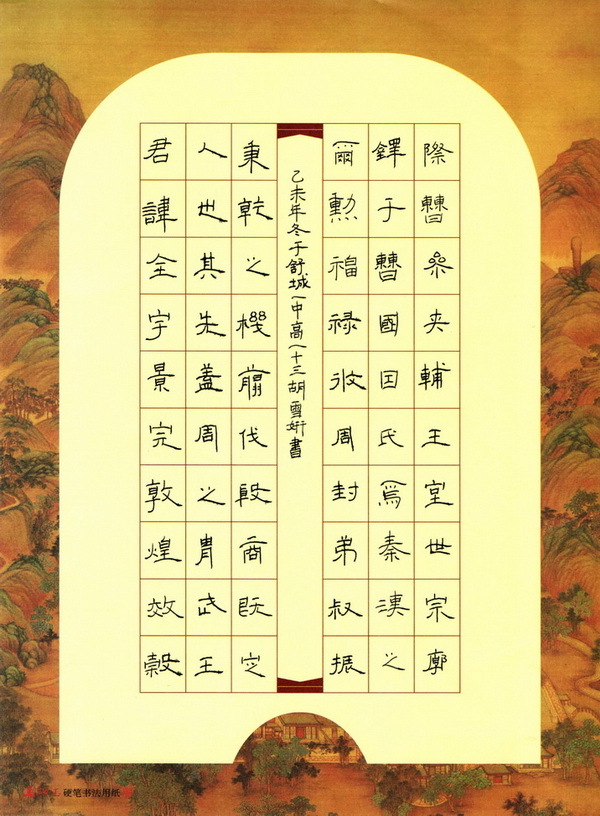 君諱全字景完敦煌效穀
人也其先蓋周之胄武王
秉乾之機翦伐殷商既定
乙未年冬于舒城一中高一十三胡雪妍書
爾勲福禄攸周封弟叔振
鐸于曹國囙氏焉秦漢之
際曹叅夹輔王室世宗廓
硬笔书法用纸